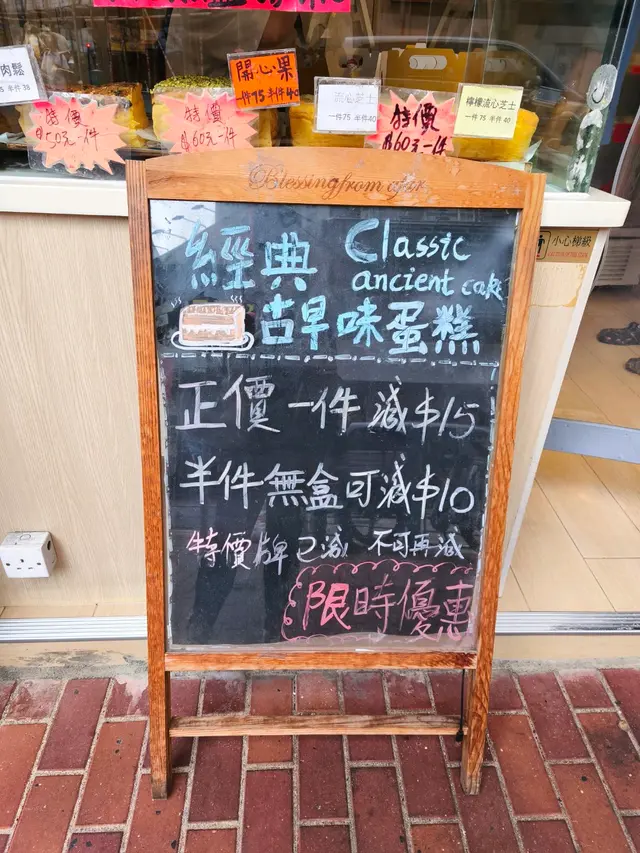 肉鬆
75 半件 38
特價
$50元一件
特價
$60元一件
開心果
一件75 半件40
流心芝士
一件75 半件40
特價
$60元一件
檸檬流心芝士
一件75 半件40
Blessing from
經典
Classic
ancient cake
古早味蛋糕
正價一件減$15
半件無盒可減$10
特價牌已減 不可再減
限時優惠
小心梯級